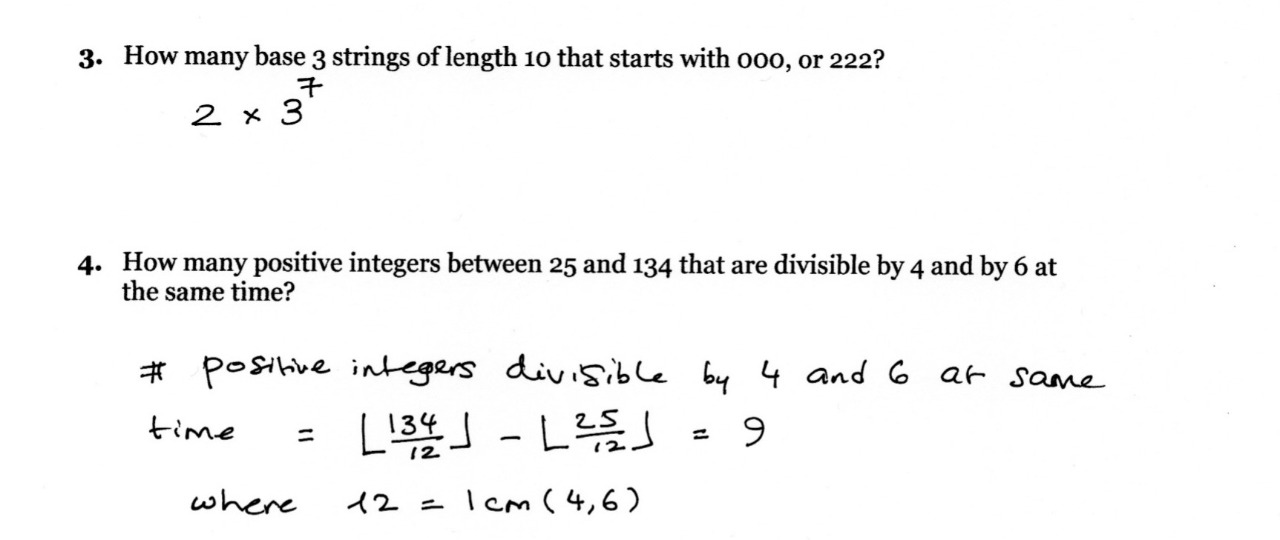 3. How many base 3 strings of length 10 that starts with 000, or 222?
2 × 3^7
4. How many positive integers between 25 and 134 that are divisible by 4 and by 6 at
the same time?
# positive integers divisible by 4 and 6 at same
time = ⌊134/12⌋ - ⌊25/12⌋ = 9
where 12 = lcm(4,6)